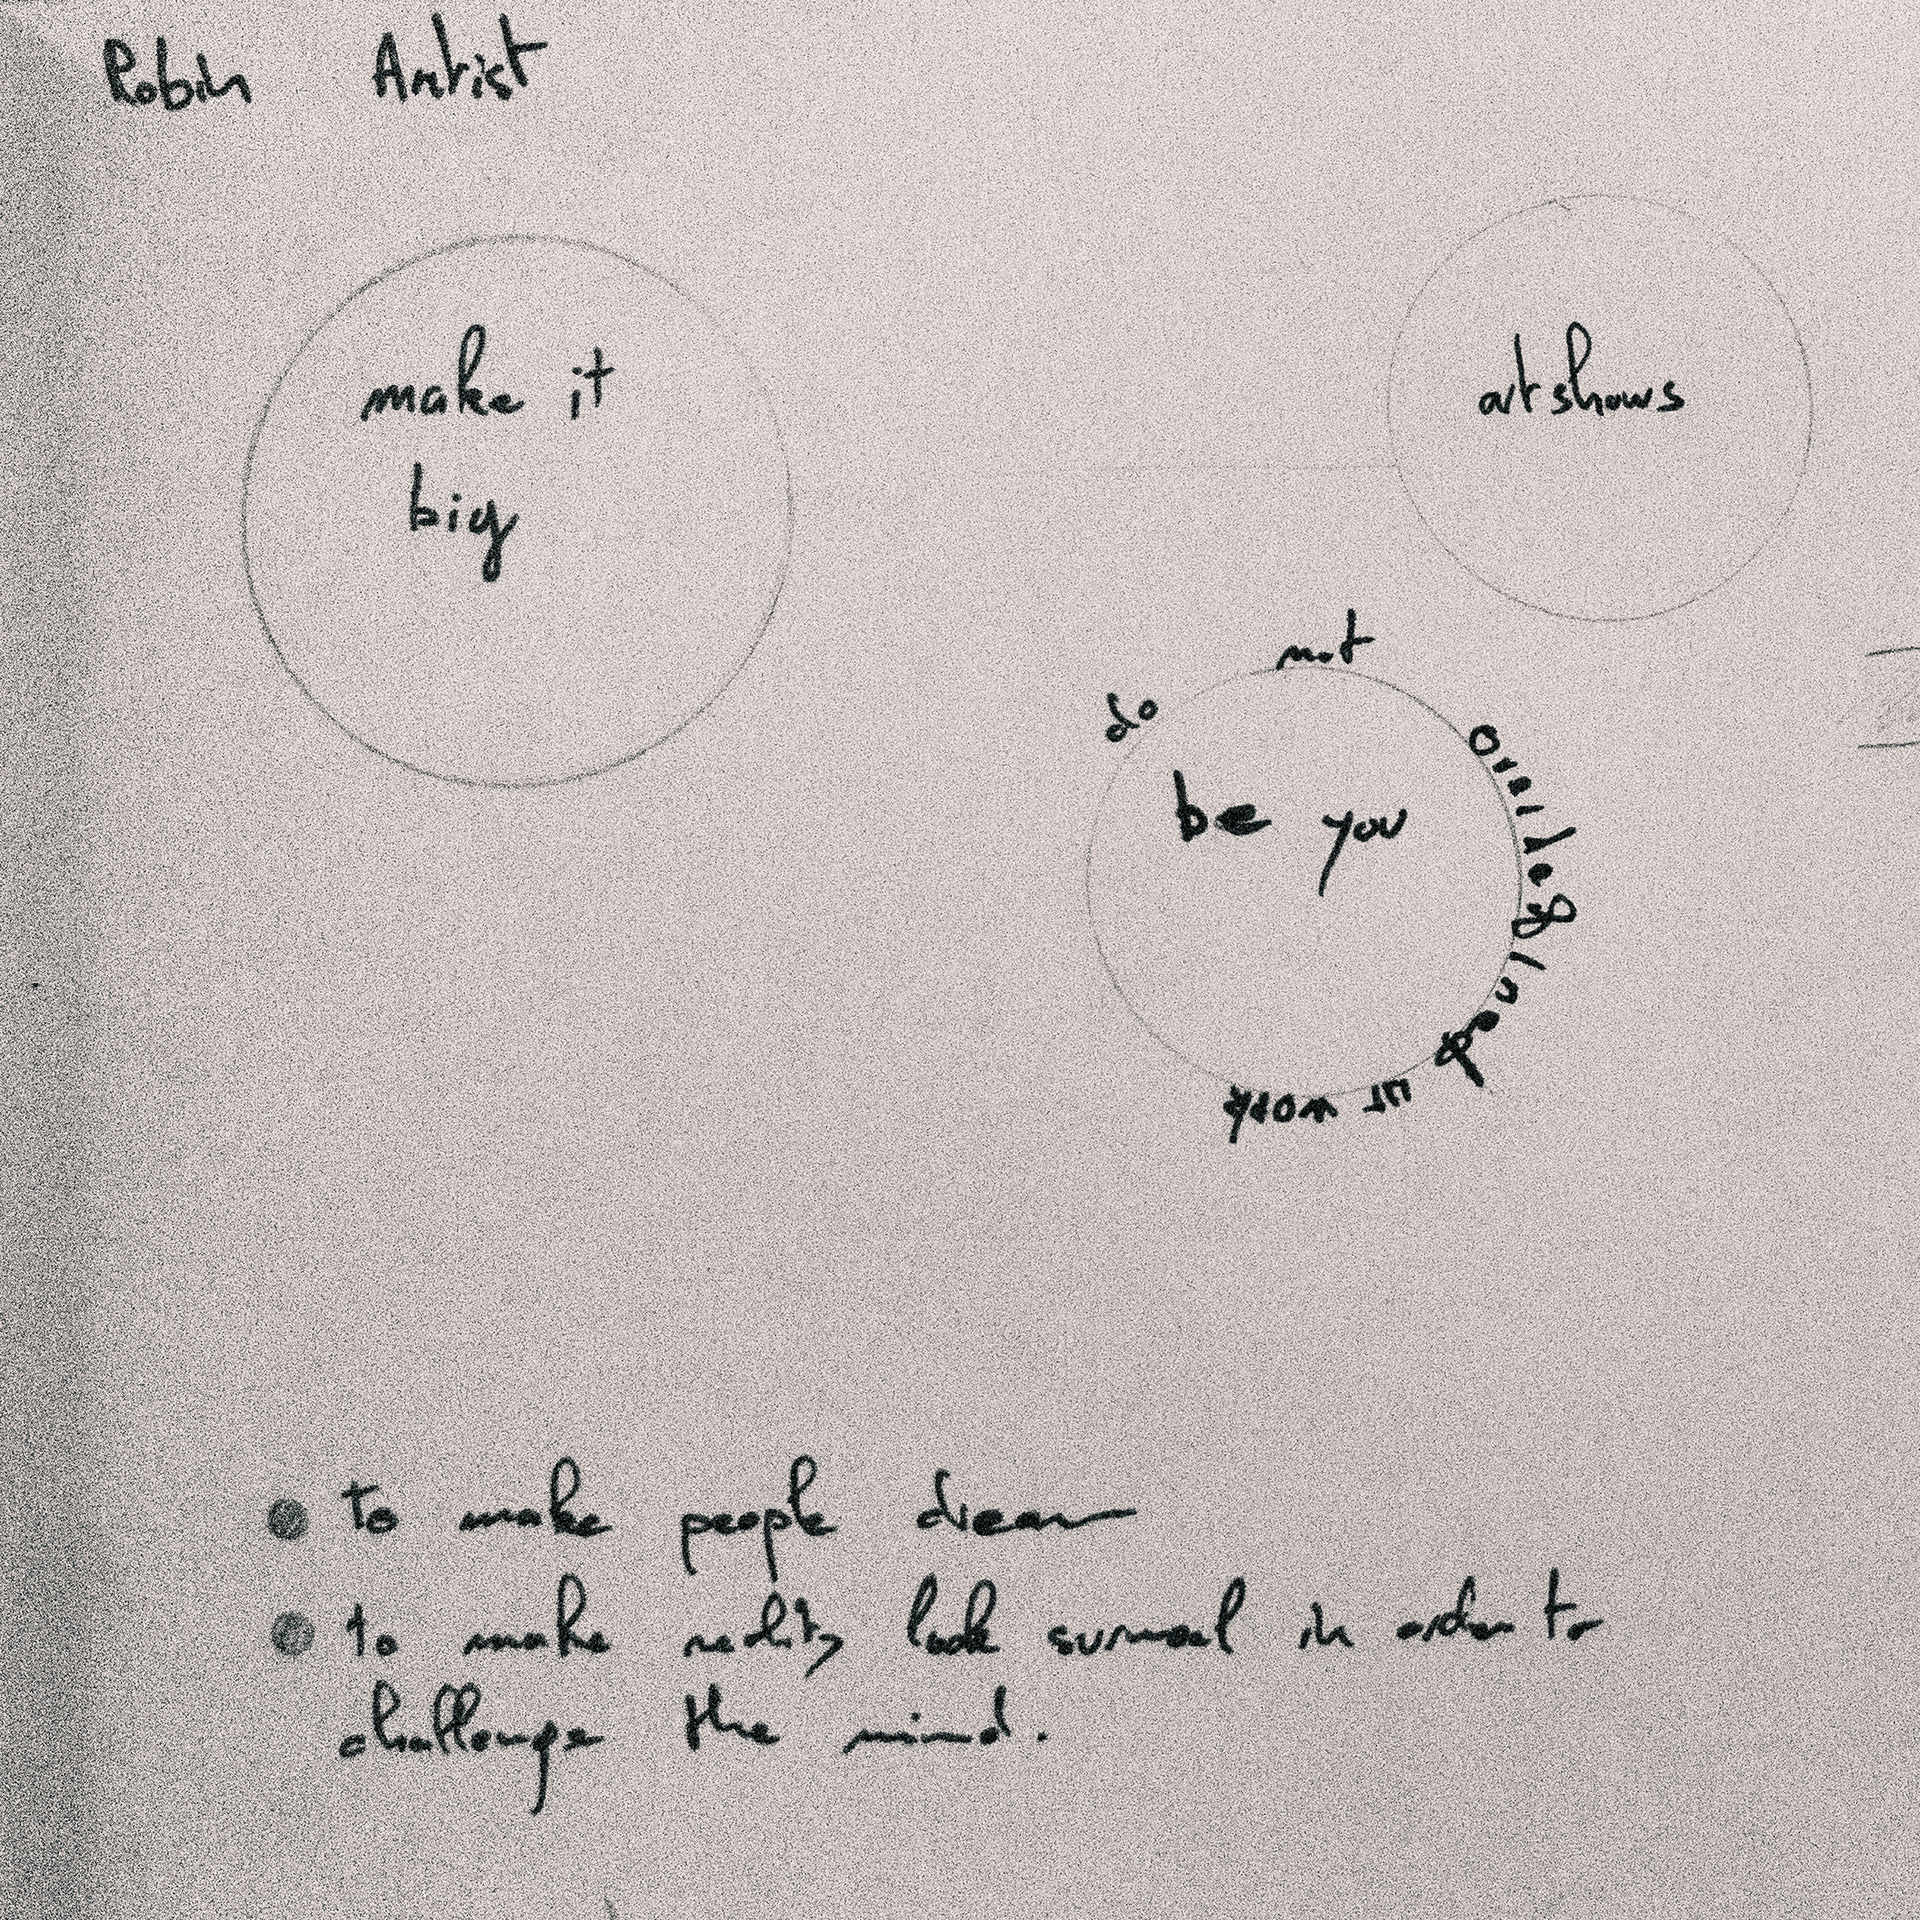 Robin Artist
make it
big
art shows
do not ur work
be you
to make people dream
to make reality look surreal in order to
challenge the mind.